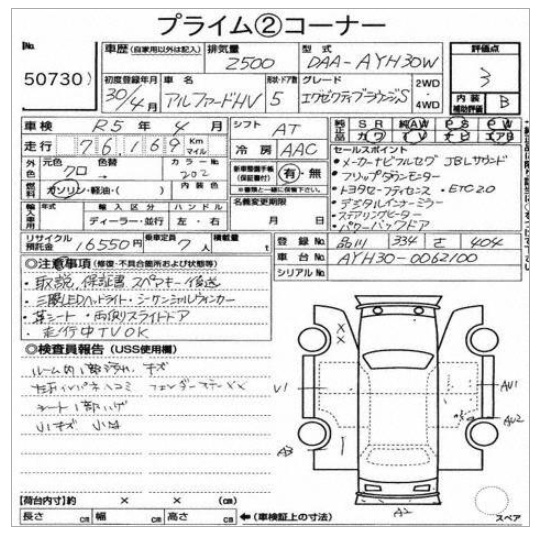 プライム②コーナー
No.
50730)
車歴 (自家用以外は記入) 排気量 2500 型式 DAA-AYH30W
評価点 3
内装補助評価 B
初度登録年月 30/4月 車名 アルファードHV 形状・ドア数 5 グレード エグゼクティブラウンジS 2WD・4WD
車検 R5年 4月 シフト AT
純正品 SR 純AW PS PW カワ TV ナビ エアB
走行 76169 Km マイル 冷房 AAC
外色 元色 クロ 色替 カラーNo. 202
燃料 ガソリン・軽油・( ) 内装色
新車整備手帳(保証書付) 有・無
※書類と一緒に保管下さい。
名義変更期限 月 日
輸入車用 年式 輸入区分 ディーラー・並行 ハンドル 左・右
セールスポイント
・メーカーナビフルセグ JBLサウンド
・フリップダウンモニター
・トヨタセーフティセンス ・ETC2.0
・デジタルインナーミラー
・ステアリングヒーター
・パワーバックドア
リサイクル預託金 16550円 乗車定員 7人 積載量 t
登録No. 品川 334 さ 404
車台No. AYH30-0062100
シリアルNo.
◎注意事項 (修復・不具合箇所および状態等)
・取説、保証書 スペアキー後送
・三眼LEDヘッドライト・シーケンシャルウィンカー
・革シート・両側スライドドア
・走行中TV OK
◎検査員報告 (USS使用欄)
ルーム内1部汚れ、キズ
シート1部ハゲ
U1 キズ 小凹
X
X
U1
A3
AU1
AU2
A2
【荷台内寸】約 × × (cm)
長さ cm 幅 cm 高さ cm ←(車検証上の寸法)
スペア